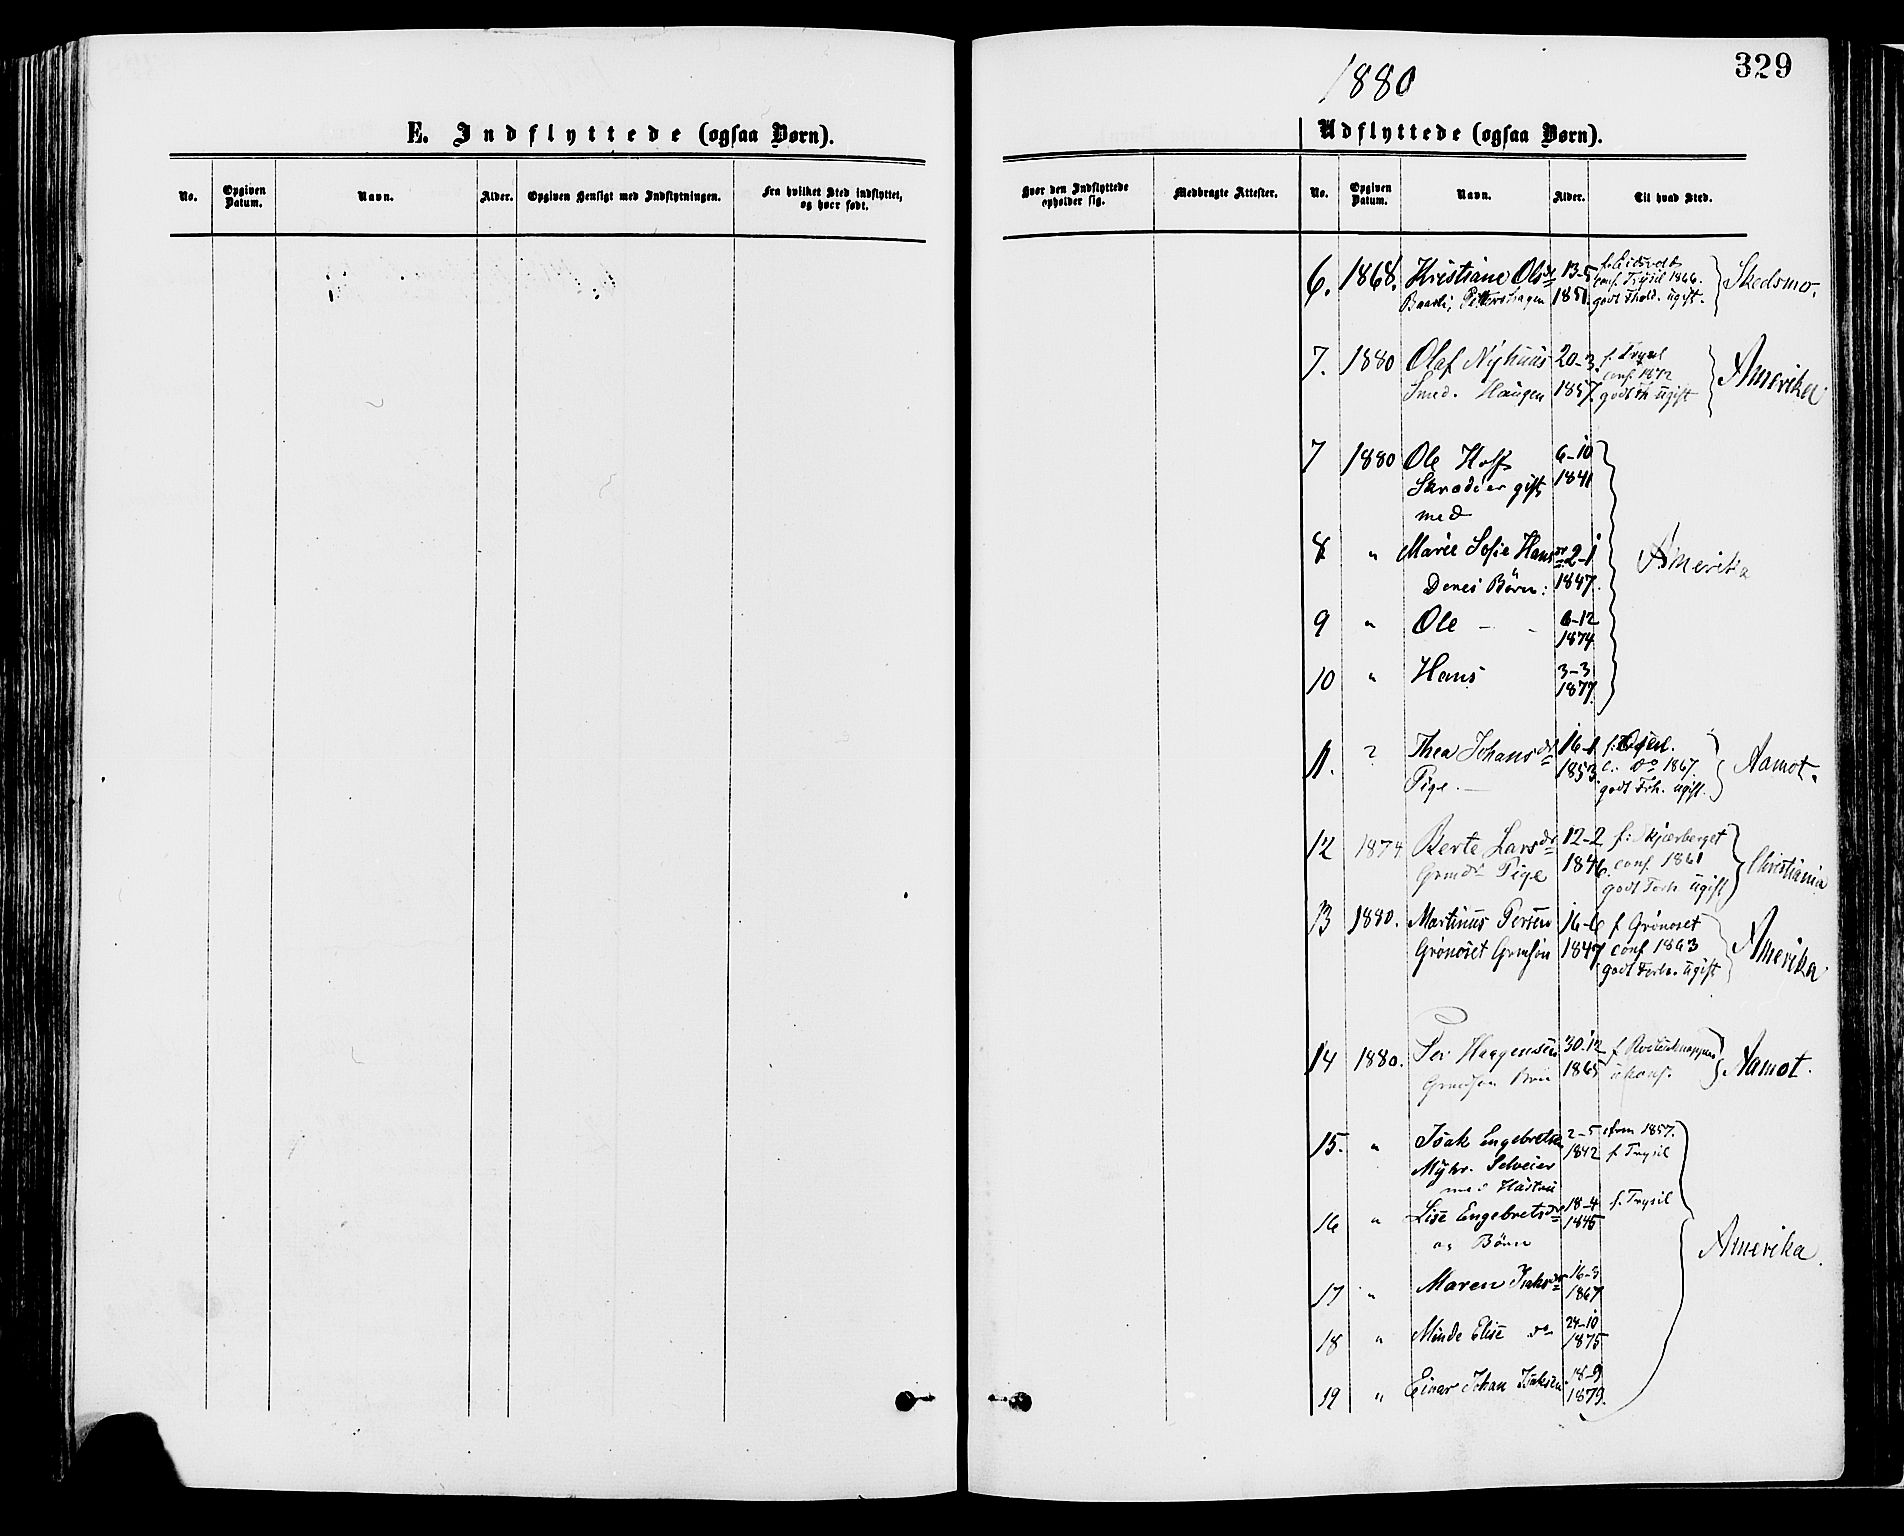 329
1880
E. Indflyttede (ogsaa Børn).
No. Opgiven Datum. Navn. Alder. Opgiven Hensigt med Indflytningen. Fra hvilket Sted indflyttet, og hvor født.
Udflyttede (ogsaa Børn).
Hvor den Indflyttede opholder sig. Medbragte Attester. No. Opgiven Datum. Navn. Alder. Til hvad Sted.
6. 1868. Kristiane Olsdr 13-5 f. Eidsvold
1851. conf. Trysil 1866. Skedsmo.
godt Fhold. ugift.
7. 1880 Olaf Nyhuus 20-3 f. Trysil
conf. 1872 Amerika
Smed. Haugen 1857. godt Fh ugift
7 1880 Ole Hoff 6-10
Skrædder gift 1841
med
8 " Marie Sofie Hansdr 2-1 Amerika
Deres Børn: 1847.
9 " Ole - - 6-12
1874
10 " Hans 3-3
1877
11. ? Thea Johansdr 16-1
1853. c. do 1867. Aamot.
Pige. godt Frh. ugift.
12 1874 Berte Larsdr 12-2 f: Skjærberget
Grmdr Pige 1846. conf 1861 Christiania
godt Forh ugift
13 1880. Martinus Persen 16-6 f Grønoset
Grønoset Grmsøn 1847 conf 1863 Amerika
godt Forh. ugift
14 1880. Per Haagensen 30.12
Grmsøn 1865 ukonf. Aamot.
15. " Isak Engebretsen 2-5 1857.
Myhr. Selveier 1842 f Trysil
med Hustru
16 " Lise Engebretsdr 18-4 f. Trysil
og Børn 1845
Amerika.
17 " Maren Isaksdr 16-3
1867
18 " Minde Elise do 24-10
1875
19 " Einar Johan Isaksen 18-9
1879.